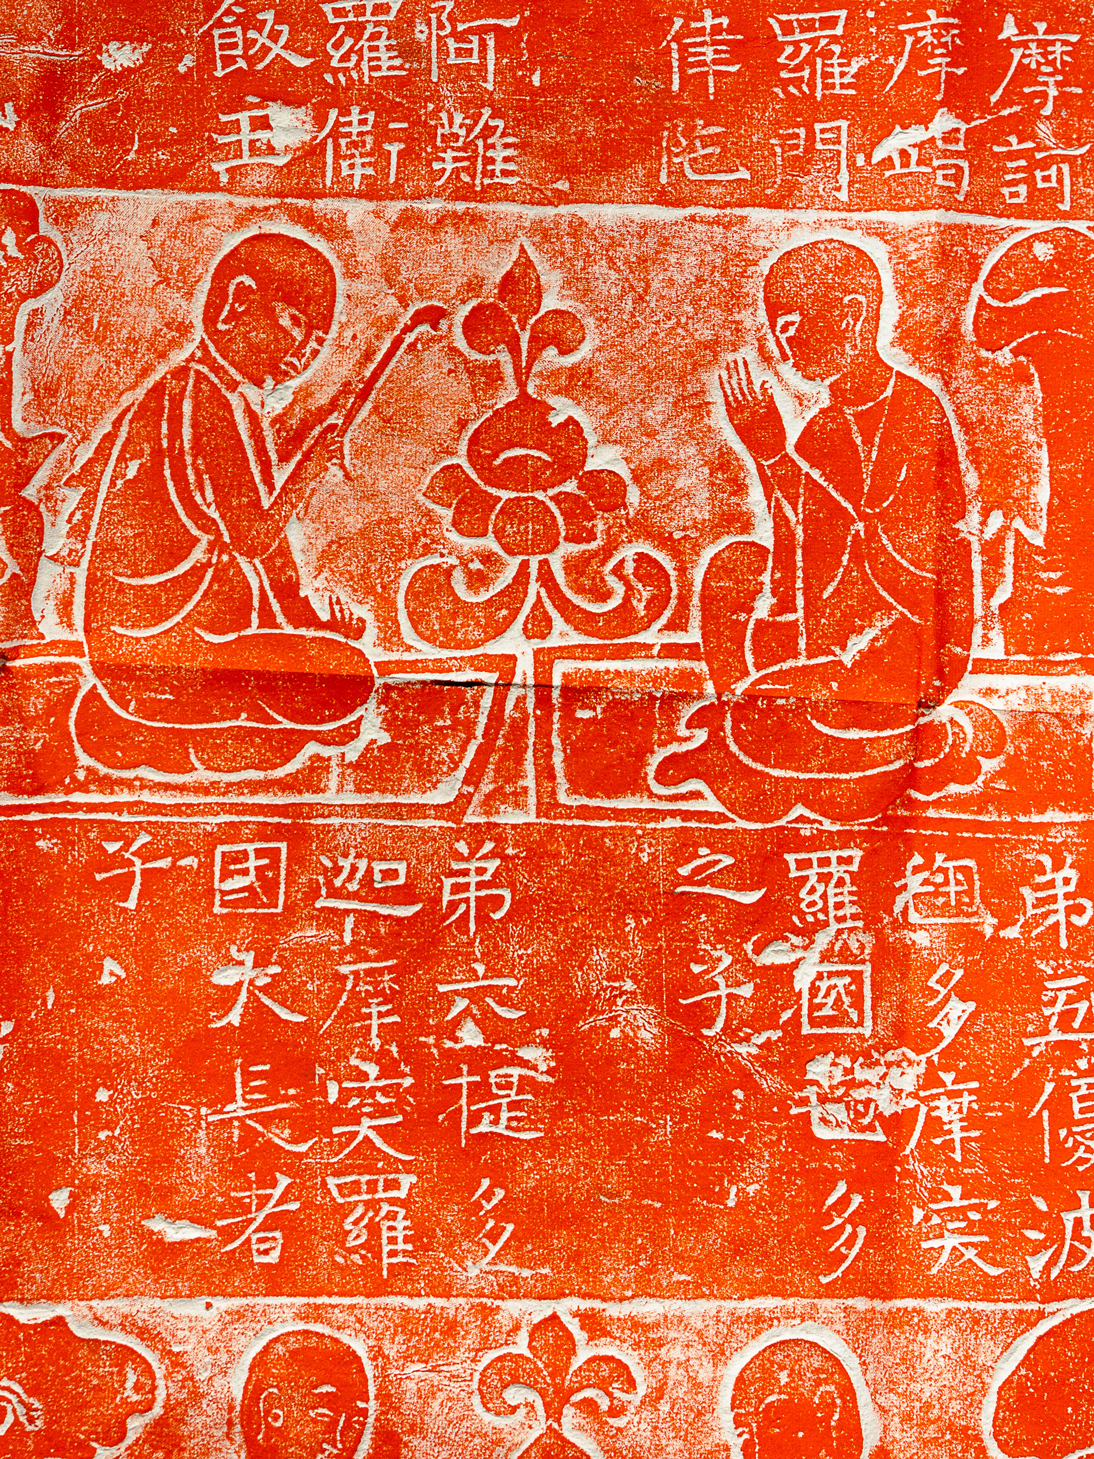 摩訶
摩竭
羅門
律陀
阿難
羅衛
飯王
弟五優波
毱多摩突
羅國毱多
之子
弟六提多
迦摩突羅
國大長者
子